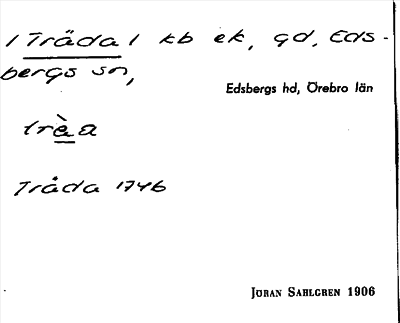 / Träda / kb ek, gd, Eds-
bergs sn,
Edsbergs hd, Örebro län
trèa
Tråda 1746
Jöran Sahlgren 1906